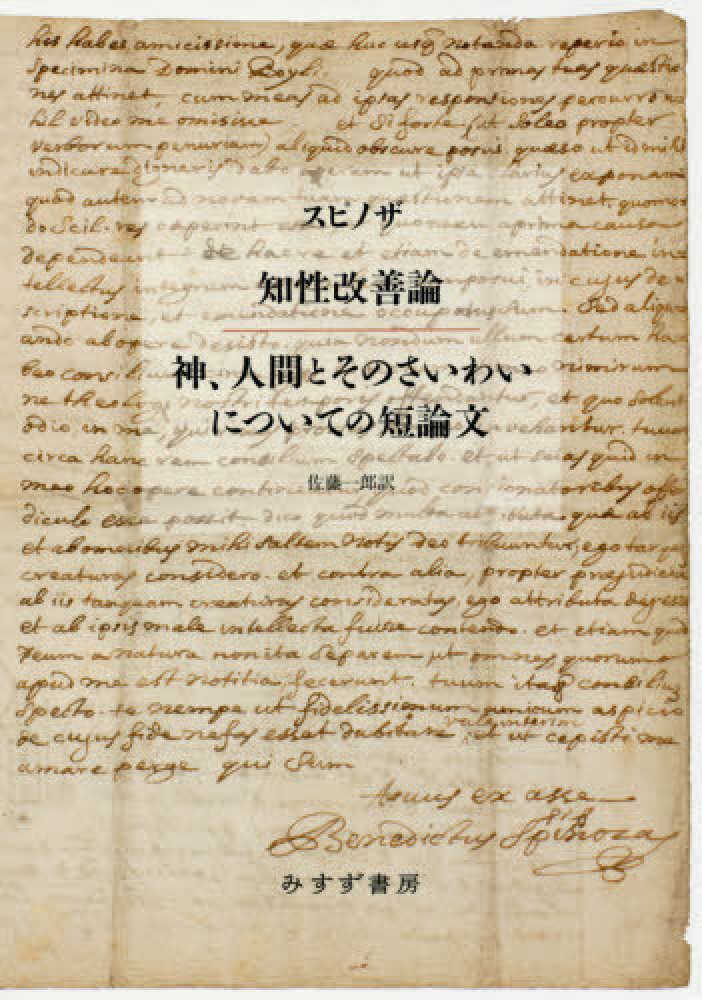 his habes amicissime, quæ huc usq notanda reperio in
specimina Domini Boyli. quod ad primas tuas quæstio
nes attinet, cum meas ad ipsas responsiones percurro ni
hil video me omisisse et si forte (ut soleo propter
verborum penuriam) aliquid obscure posui, quæso ut id mihi
indicare digneris dabo operam ut ipsa clarius exponam
quod autem ad novam tuam quæstionem attinet, quomo
do scil. res a prima causa
スピノザ
dependeant de hac re et etiam de emendatione in
tellectus integrum in cujus de
知性改善論
scriptione et emendatione occupatus sum. sed aliqu
ando ab opere desisto quia nondum ullum certum ha
beo consilium nimirum
神、人間とそのさいわい
ne theologi et quo solent
odio in me, tuum
についての短論文
circa hanc rem consilium spectabo. et ut scias quid in
meo hoc opere
佐藤一郎訳
diculo esse possit dico quod multa attributa quæ ab iis
et ab omnibus mihi saltem notis deo tribuuntur, ego tanquam
creaturas considero. et contra alia, propter præjudicia
ab iis tanquam creaturas consideratas, ego attributa dei esse
et ab ipsis male intellecta fuisse contendo. et etiam quod
Deum a natura non ita separem ut omnes quorum
apud me est notitia fecerunt. tuum itaq consilium
specto. te nempe ut fidelissimum amicum aspicio
de cujus fide nefas esset dubitare vale interim et ut cepisti me
amare perge qui sum
tuus ex asse
Benedictus Spinoza
みすず書房